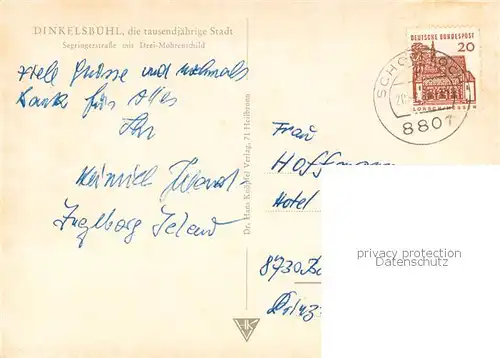 DINKELSBÜHL, die tausendjährige Stadt
Segringerstraße mit Drei-Mohrenschild
viele Grüsse und nochmals
Dank für Alles
Ihr
Heinrich
Ingeborg
Dr. Hans Knöpfel Verlag, 71 Heilbronn
DEUTSCHE BUNDESPOST
20
8801
Frau
Hoffmann
Hotel
8730 Ba
privacy protection
Datenschutz
HK